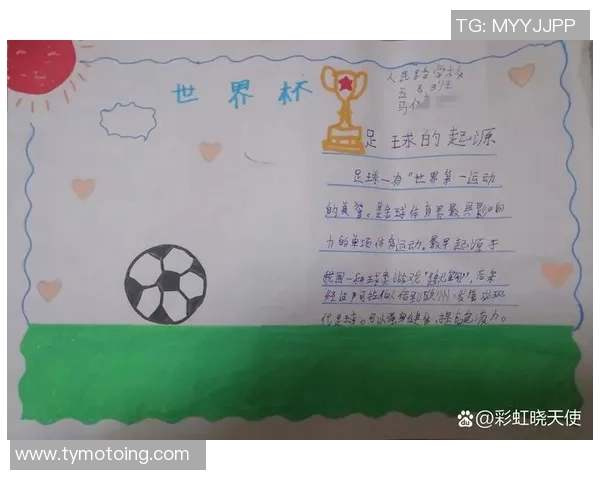 TG: MYYJJPP
人民路学校
五
马
世界杯
足球的起源
足球一有"世界第一运动
的美誉,是全球体育界最具影响
力的单项体育运动。最早起源于
我国一种球类游戏"蹴鞠",后来
经过阿拉伯人传到欧洲,发展成现
代足球。可以强身健体,
@彩虹晓天使
www.tymotoing.com